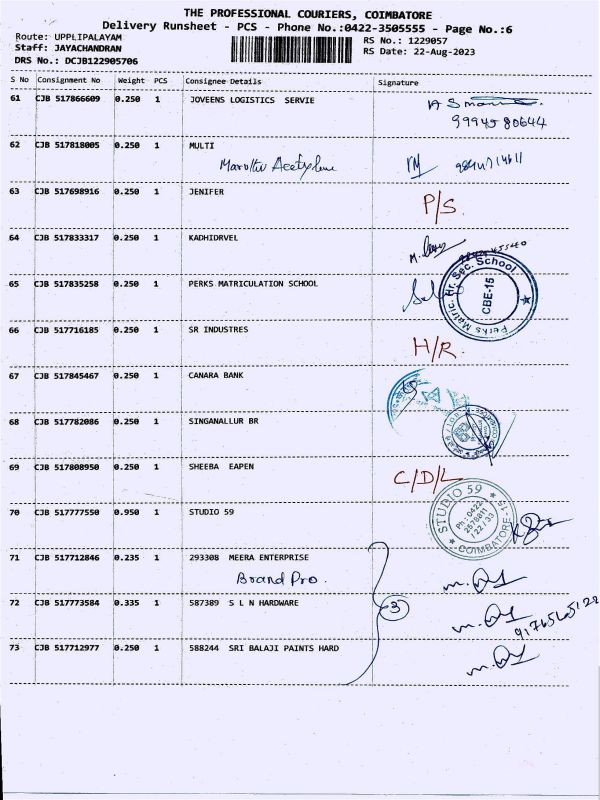 THE PROFESSIONAL COURIERS, COIMBATORE
Delivery Runsheet - PCS - Phone No.:0422-3505555 - Page No.:6
Route: UPPLIPALAYAM
RS No.: 1229057
Staff: JAYACHANDRAN
RS Date: 22-Aug-2023
DRS No.: DCJB122905706
S No Consignment No Weight PCS Consignee Details Signature
61 CJB 517866609 0.250 1 JOVEENS LOGISTICS SERVIE
9994580644
62 CJB 517818005 0.250 1 MULTI
63 CJB 517698916 0.250 1 JENIFER P/S.
64 CJB 517833317 0.250 1 KADHIDRVEL
65 CJB 517835258 0.250 1 PERKS MATRICULATION SCHOOL
Perks Matric. Hr. Sec. School
CBE-15
66 CJB 517716185 0.250 1 SR INDUSTRES H/R.
67 CJB 517845467 0.250 1 CANARA BANK
68 CJB 517782086 0.250 1 SINGANALLUR BR
69 CJB 517808950 0.250 1 SHEEBA EAPEN C/D/L
70 CJB 517777550 0.950 1 STUDIO 59
STUDIO 59
Ph: 0422-
2576811
/22/33
COIMBATORE-15
71 CJB 517712846 0.235 1 293308 MEERA ENTERPRISE
Brand Pro.
72 CJB 517773584 0.335 1 587389 S L N HARDWARE 3
73 CJB 517712977 0.250 1 588244 SRI BALAJI PAINTS HARD